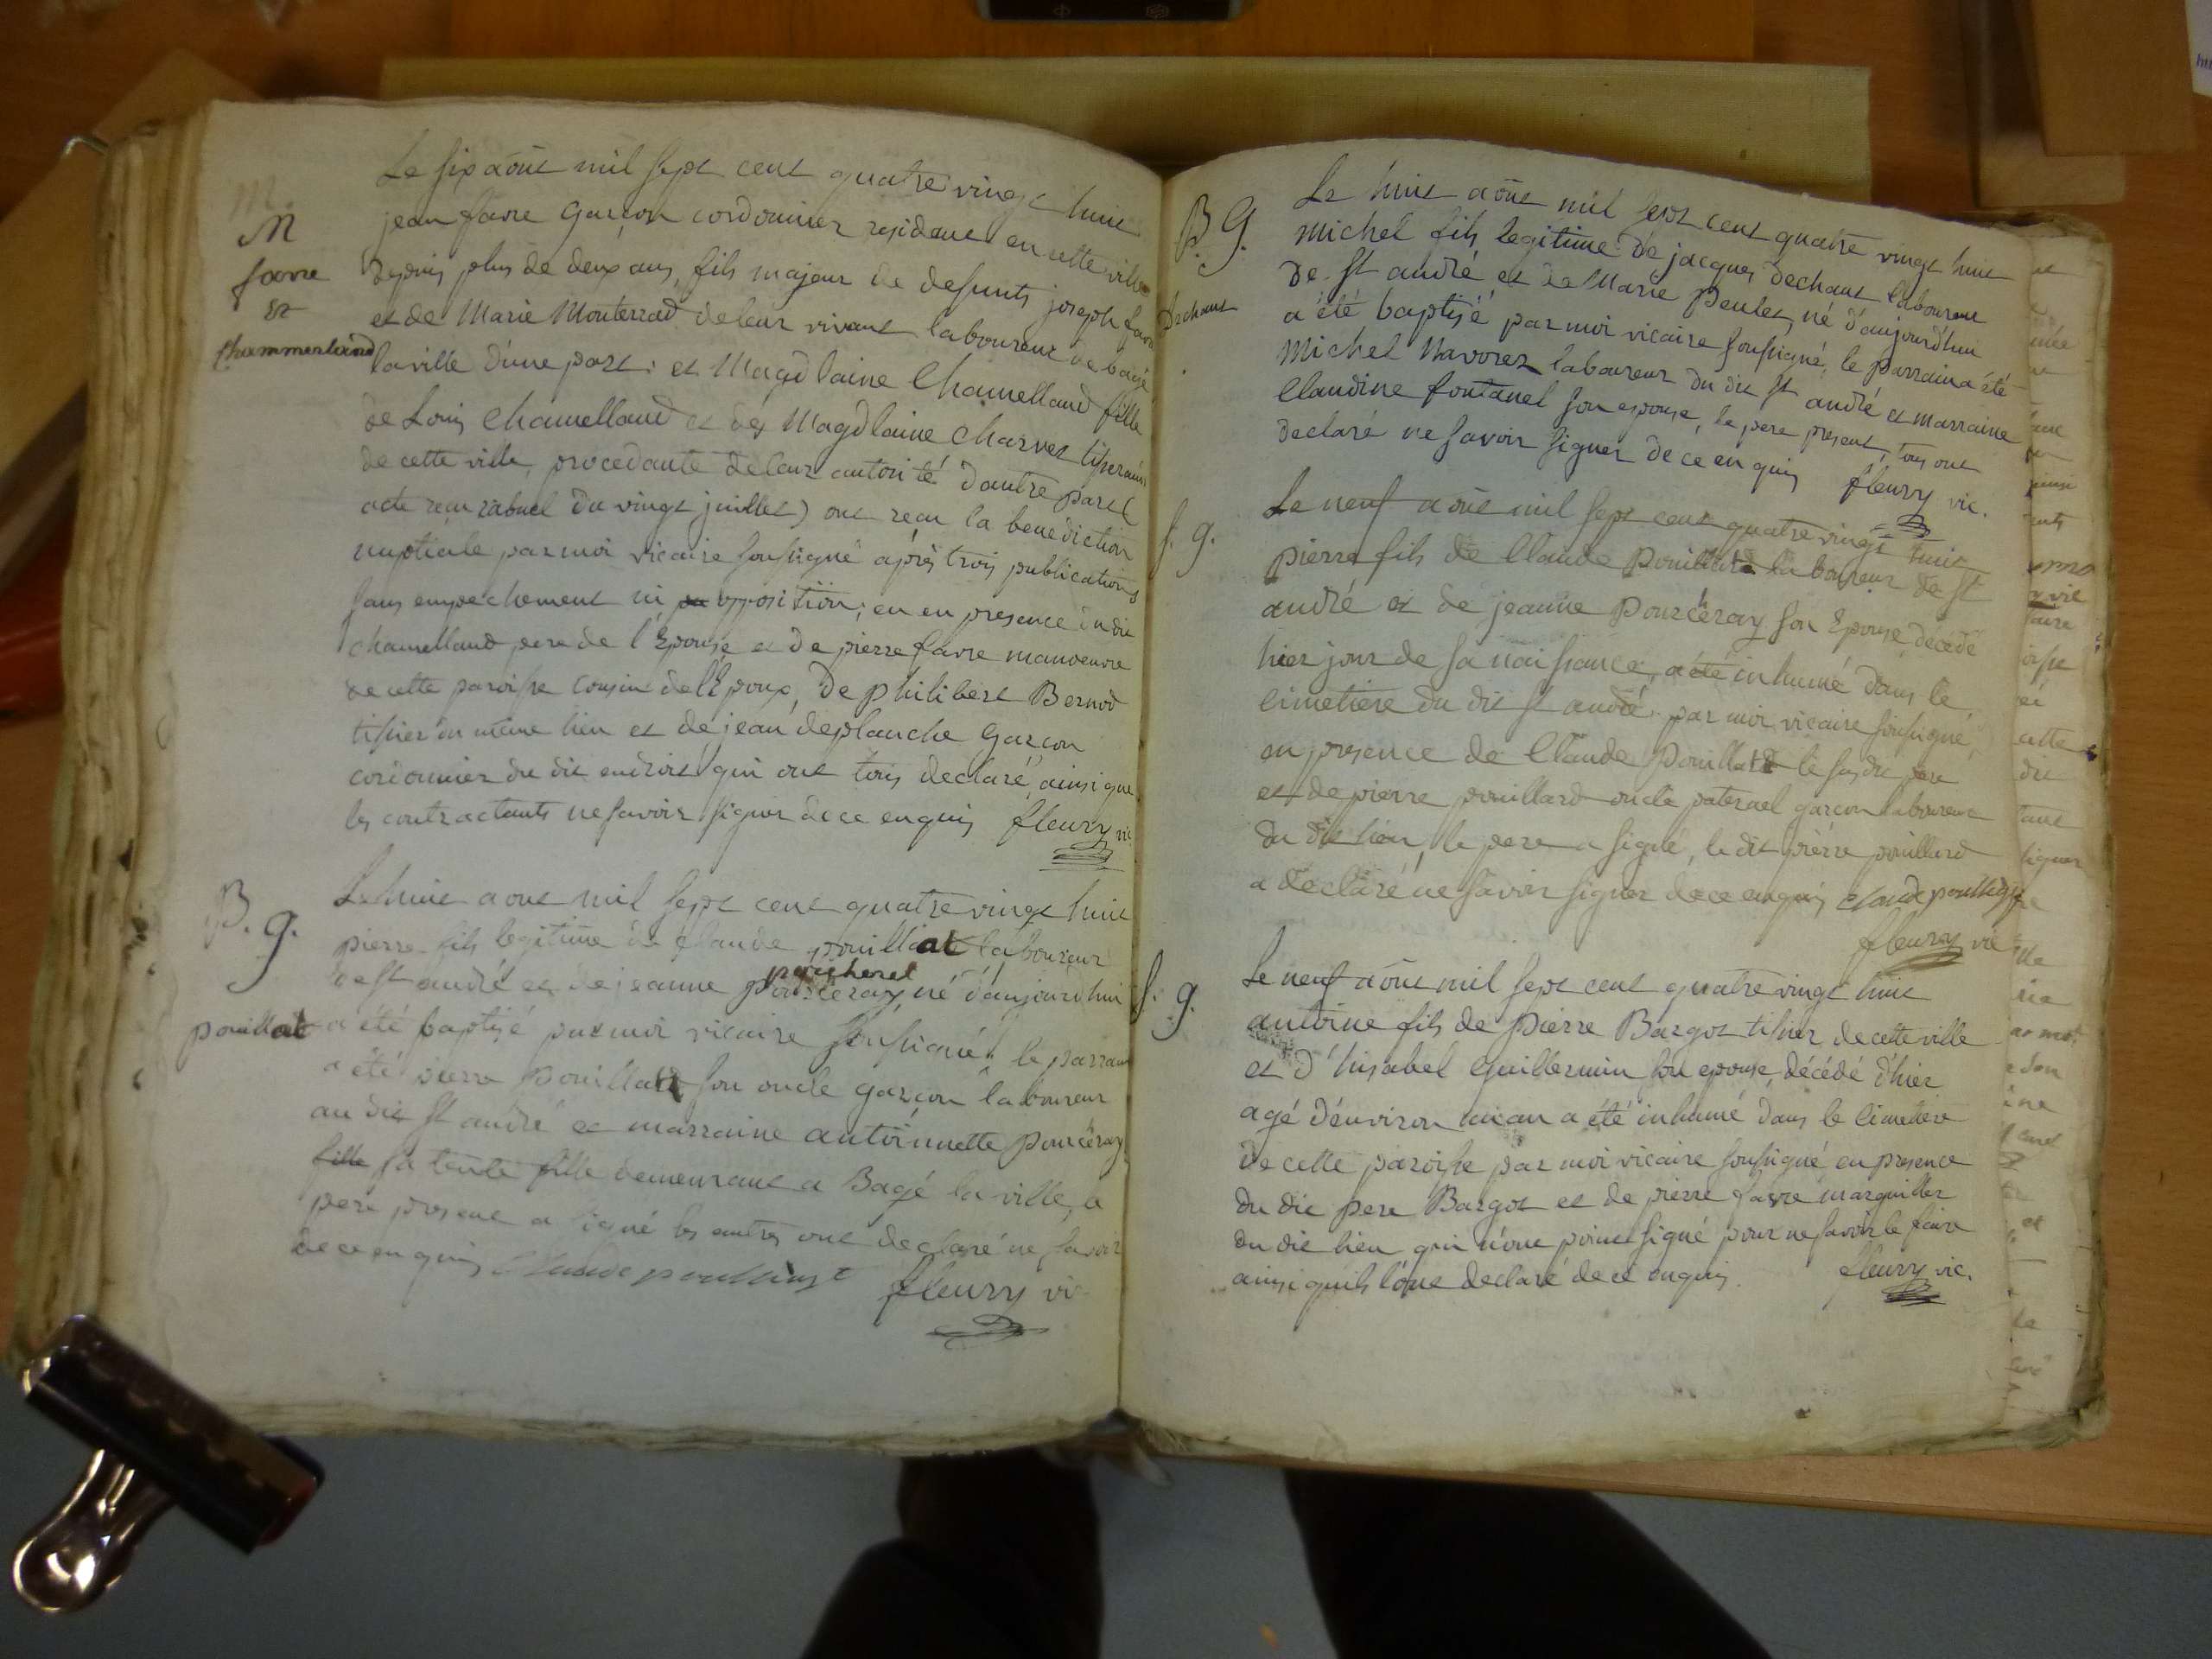 M
favre
et
Chammerland
Le six août mil sept cent quatre vingt huit
jean favre garçon cordonnier residant en cette ville
depuis plus de deux ans, fils majeur de defunts joseph favre
et de Marie Monterrad de leur vivant laboureur de bagé
la ville d'une part: et Magdlaine Chamelland fille
de Louis Chamelland et de Magdlaine Charvet tisserains
de cette ville, procedante de leur autorité d'autre part (
acte reçu rabuel du vingt juillet) ont reçu la benediction
nuptiale par moi vicaire soussigné après trois publications
sans empechement ni opposition; en en presence du dit
chamelland pere de l'Epouse et de pierre favre manoeuvre
de cette paroisse cousin de l'Epoux, de philibert Bernod
tissier du même lieu et de jean deplanche garçon
cordonnier du dit endroit qui ont tous declaré ainsi que
les contractants ne savoir signer de ce enquis fleury vic
B. g.
pouillat
Le huit aout mil sept cent quatre vingt huit
pierre fils legitime de claude pouillat laboureur
de st andré et de jeanne pourceray, né d'aujourd'hui
a été baptisé par moi vicaire soussigné: le parrain
a été pierre pouillat son oncle garçon laboureur
au dit st andré et marraine antoinette pourceray
fille sa tente fille demeurant a Bagé la ville, a
pere present a signé les autres ont declaré ne savoir
de ce enquis Claude
fleury vic
B g.
Dechant
Le huit août mil sept cent quatre vingt huit
Michel fils legitime de jacques dechant laboureur
de st andré et de Marie Peulet, né d'aujourd'hui
a été baptisé par moi vicaire soussigné, le parrain a été
Michel Navorez laboureur du dit st andré et marraine
Claudine fontanel son epouse, le pere present, tous ont
declaré ne savoir signer de ce enquis fleury vic.
s. g.
Le neuf août mil sept cent quatre vingt huit
pierre fils de Claude Pouillat laboureur de st
andré et de jeanne Pourceray son Epouse, decedé
hier jour de sa naissance, a été inhumé dans le
cimetiere du dit st andré par moi vicaire soussigné,
en presence de Claude Pouillat le susdit pere
et de pierre pouillard oncle paternel garçon laboureur
du dit lieu, le pere a signé, le dit pierre pouillard
a declaré ne savoir signer de ce enquis claude
fleury vic
s. g.
Le neuf août mil sept cent quatre vingt huit
antoine fils de Pierre Bargot tissier de cette ville
et d'hisabel Guillermin son epouse, décédé d'hier
agé d'environ un an a été inhumé dans le cimetiere
de cette paroisse par moi vicaire soussigné en presence
du dit pere Bargot et de pierre favre marguiller
du dit lieu qui n'ont point signé pour ne savoir le faire
ainsi qu'ils l'ont declaré de ce enquis. fleury vic.